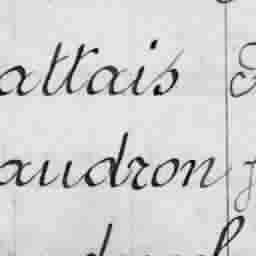 attais
audron